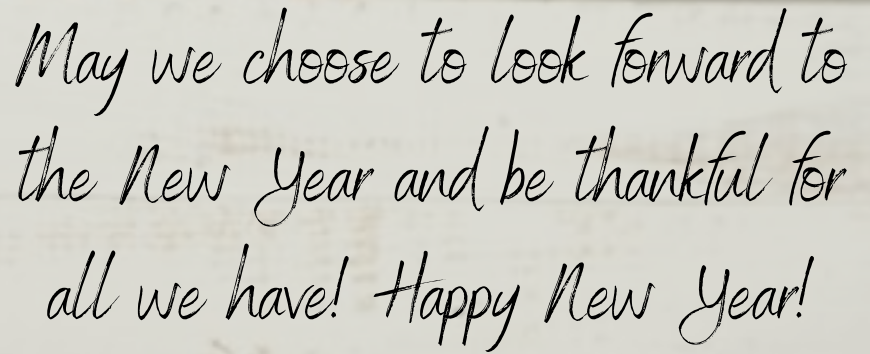 May we choose to look forward to
the New Year and be thankful for
all we have! Happy New Year!